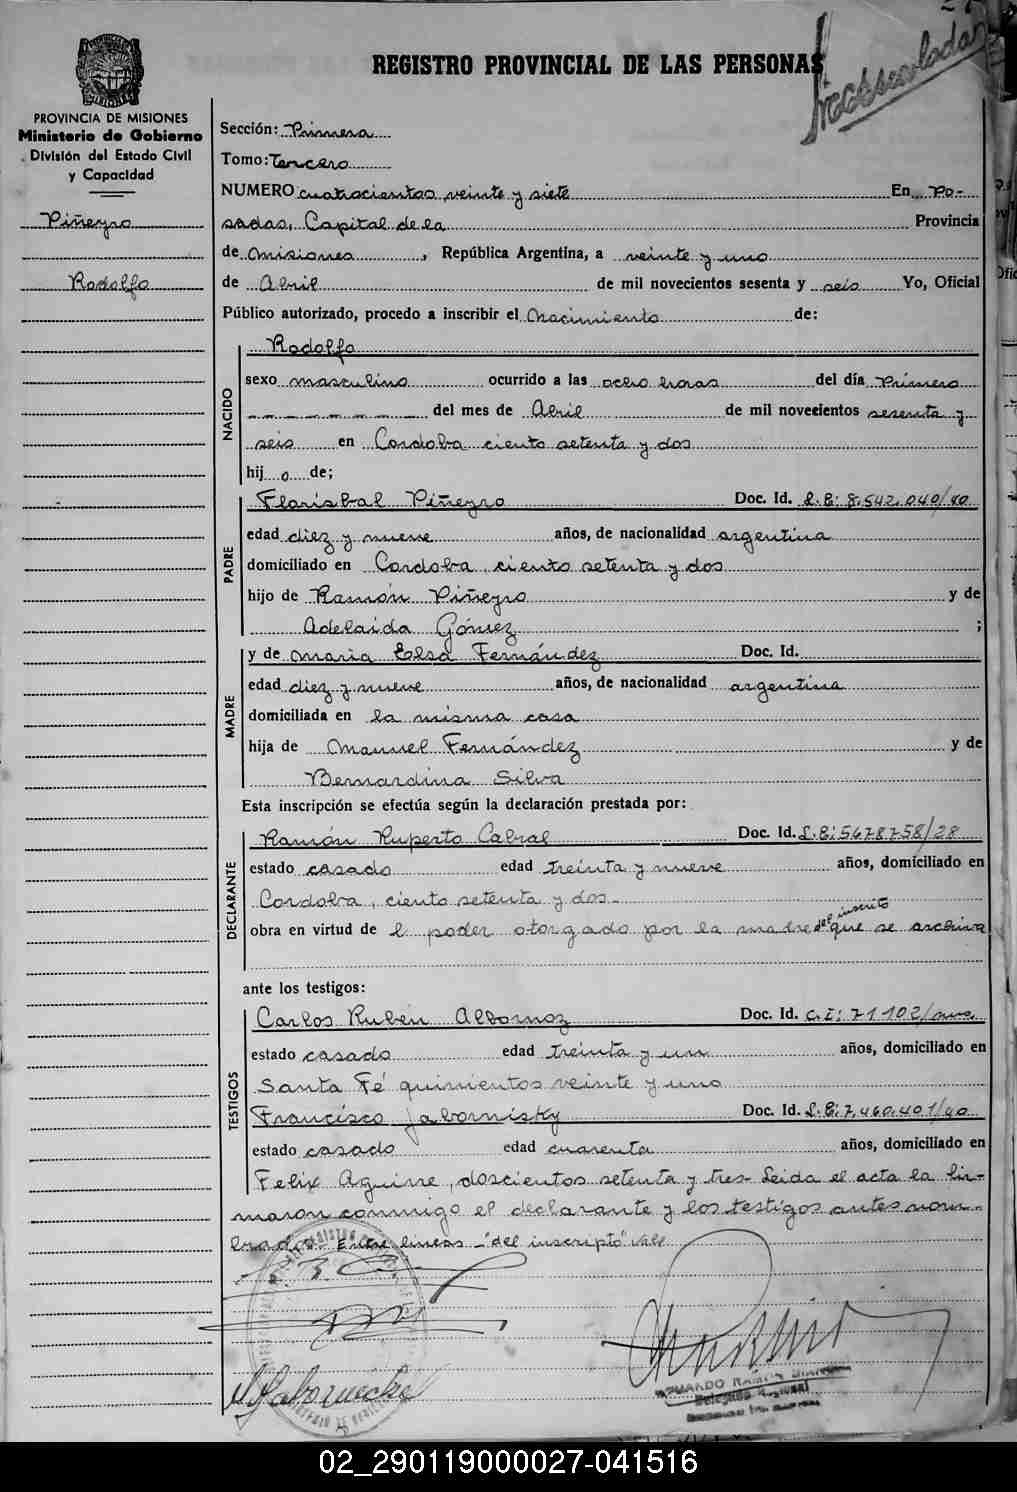 REGISTRO PROVINCIAL DE LAS PERSONAS
PROVINCIA DE MISIONES
Ministerio de Gobierno
División del Estado Civil
y Capacidad
Piñeyro
Rodolfo
Sección: Primera
Tomo: Tercero
NUMERO cuatrocientos veinte y siete En Po-
sadas, Capital de la Provincia
de Misiones, República Argentina, a veinte y uno
de Abril de mil novecientos sesenta y seis Yo, Oficial
Público autorizado, procedo a inscribir el Nacimiento de:
NACIDO
Rodolfo
sexo masculino ocurrido a las ocho horas del día Primero
del mes de Abril de mil novecientos sesenta y
seis en Cordoba ciento setenta y dos
hij o de;
PADRE
Florisbal Piñeyro Doc. Id. L.E: 8.542.040/40
edad diez y nueve años, de nacionalidad argentina
domiciliado en Cordoba, ciento setenta y dos
hijo de Ramón Piñeyro y de
Adelaida Gómez ;
MADRE
y de Maria Elsa Fernández Doc. Id.
edad diez y nueve años, de nacionalidad argentina
domiciliada en la misma casa
hija de Manuel Fernández y de
Bernardina Silva
Esta inscripción se efectúa según la declaración prestada por:
DECLARANTE
Ramón Ruperto Cabral Doc. Id. L.E: 5678758/28
estado casado edad treinta y nueve años, domiciliado en
Cordoba, ciento setenta y dos-
obra en virtud de l poder otorgado por la madre del inscrito que se archiva
ante los testigos:
TESTIGOS
Carlos Rubén Albornoz Doc. Id. C.I: 71.102/mnes.
estado casado edad treinta y un años, domiciliado en
Santa Fé quinientos veinte y uno
Francisco Jabornisky Doc. Id. L.E: 7.460.401/40
estado casado edad cuarenta años, domiciliado en
Felix Aguirre, doscientos setenta y tres- Leida el acta la fir-
maron conmigo el declarante y los testigos antes nom-
brados. Entre lineas -"del inscripto" Vale
EDUARDO RAMON
Delegado
02_290119000027-041516